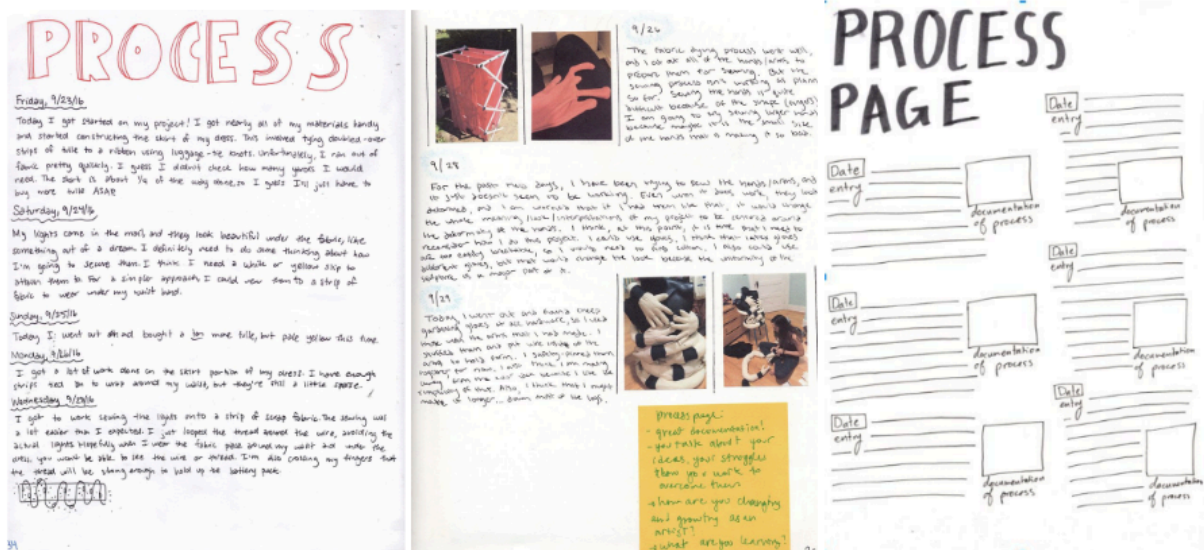 PROCESS
Friday, 9/23/16
Today I got started on my project! I got nearly all of my materials handy
and started constructing the skirt of my dress. This involved tying doubled-over
strips of tulle to a ribbon using luggage-tie knots. Unfortunately, I ran out of
fabric pretty quickly. I guess I didn't check how many yards I would
need. The skirt is about 1/4 of the way done, so I guess I'll just have to
buy more tulle ASAP
Saturday, 9/24/16
My lights came in the mail and they look beautiful under the fabric, like
something out of a dream. I definitely need to do some thinking about how
I'm going to secure them. I think I need a white or yellow slip to
attach them to. For a simpler approach, I could sew them to a strip of
fabric to wear under my waist band.
Sunday, 9/25/16
Today I went out and bought a ton more tulle, but pale yellow this time.
Monday, 9/26/16
I got a lot of work done on the skirt portion of my dress. I have enough
strips tied on to wrap around my waist, but they're still a little sparse.
Wednesday 9/28/16
I got to work sewing the lights onto a strip of scrap fabric. The sewing was
a lot easier than I expected. I just looped the thread around the wire, avoiding the
actual lights. Hopefully when I wear the fabric piece around my waist and under the
dress, you won't be able to see the wire or thread. I'm also crossing my fingers that
the thread will be strong enough to hold up the battery pack.
34
9/26
The fabric dying process went well,
and I cut out all of the hands/arms to
prepare them for sewing. But the
sewing process isn't working as planned
so far. Sewing the hands is quite
difficult because of the shape (fingers)
I am going to try sewing larger hands
because maybe it is the small size
of the hands that is making it so bad.
9/28
For the past two days, I have been trying to sew the hands/arms, and
it just doesn't seem to be working. Even when it does work, they look
deformed, and I am worried that if I had them like that, it would change
the whole meaning/look/interpretations of my project to be centered around
the deformity of the hands. I think, at this point, it is time that I need to
reconsider how I do this project. I could use gloves, I think that latex gloves
are too
different gloves, but that would change the look because the uniformity of the
sculpture is a major part of it.
9/29
Today, I went out and found cheap
gardening gloves at ace hardware, so I used
those with the arms that I had made. I
stuffed them and put wire inside of the
arms to hold form. I safety-pinned them
together for now.
process page:
- great documentation!
- you talk about your
ideas, your struggles
& how you work to
overcome them
→ how are you changing
and growing as an
artist?
→ what are you learning?
PROCESS
PAGE
Date
entry
Date
entry
documentation
of process
documentation
of process
Date
entry
Date
entry
documentation
of process
documentation
of process
Date
entry
Date
entry
documentation
of process
documentation
of process